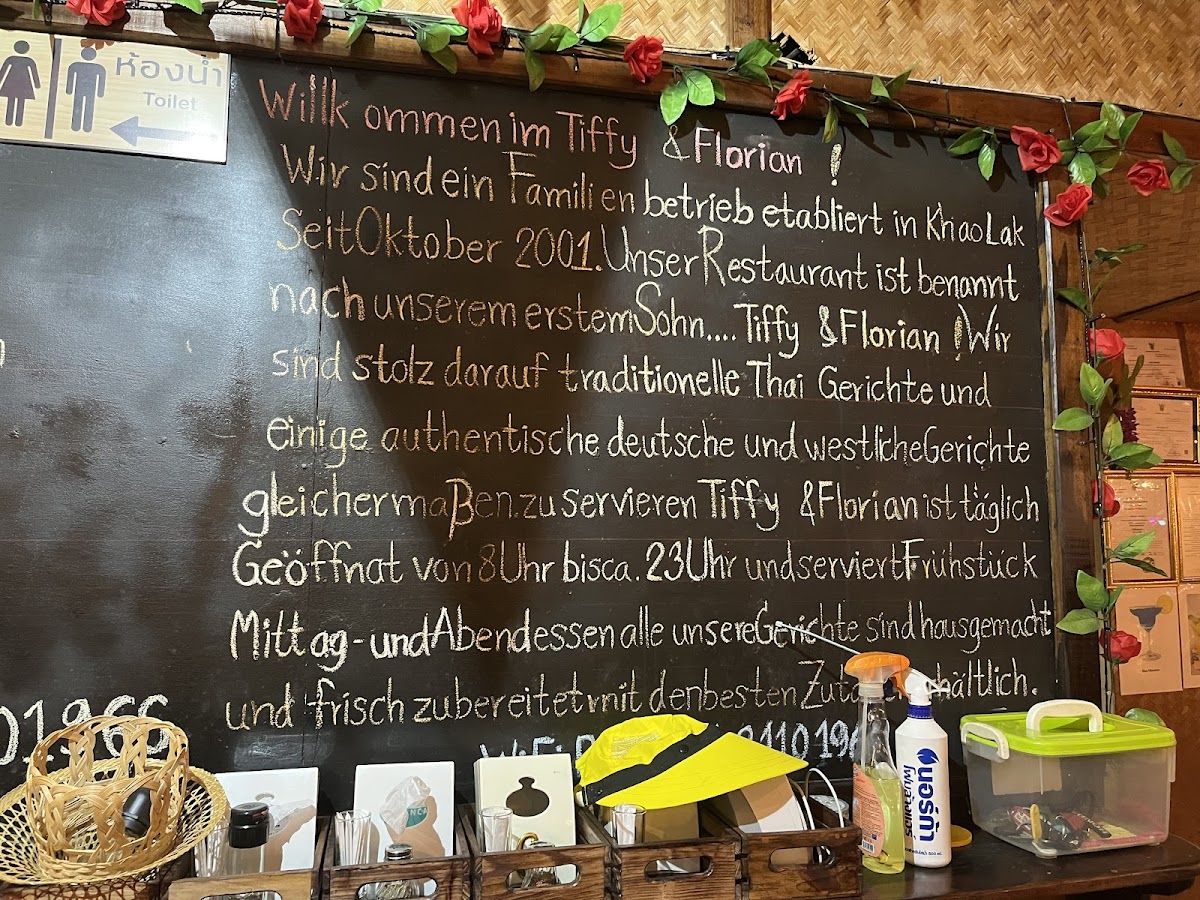 ห้องน้ำ
Toilet
Willkommen im Tiffy & Florian !
Wir sind ein Familienbetrieb etabliert in Khao Lak
Seit Oktober 2001. Unser Restaurant ist benannt
nach unserem ersten Sohn.... Tiffy & Florian ! Wir
sind stolz darauf traditionelle Thai Gerichte und
einige authentische deutsche und westliche Gerichte
gleichermaßen. zu servieren Tiffy & Florian ist täglich
Geöffnat von 8 Uhr bis ca. 23 Uhr und serviert Frühstück
Mittag - und Abendessen alle unsere Gerichte sind hausgemacht
und frisch zubereitet mit den besten
01966
WiFi